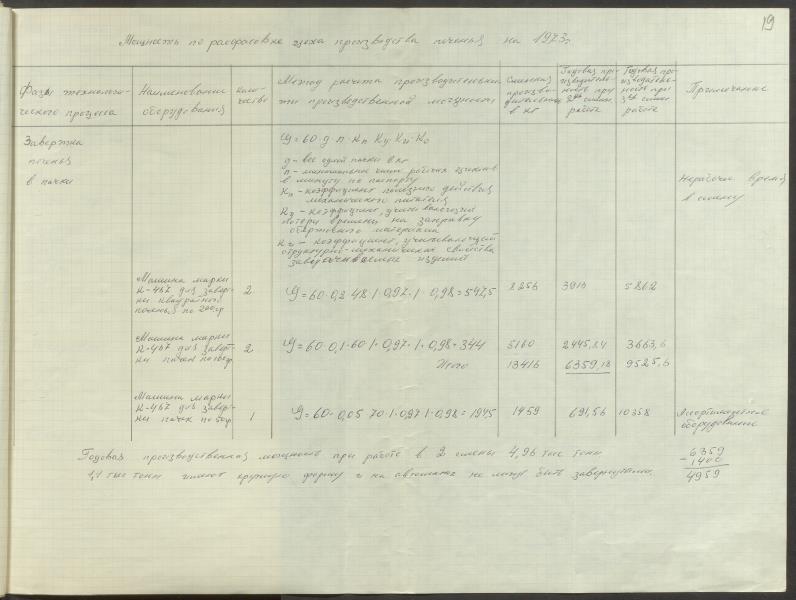 19
Мощность по расфасовке цеха производства печенья на 1973г.
Фазы технологи-
ческого процесса
Наименование
оборудования
коли-
чество
Метод расчета производительнос-
ти производственной мощности
Сменная
произво-
дительность
в кг
Годовая про-
изводитель-
ность при
2х смен.
работе
Годовая про-
изводитель-
ность при
3х смен.
работе
Примечание
Завертка
печенья
в пачки
g – вес одной пачки в кг
n – минимальное число рабочих циклов
в минуту по паспорту
Кn – коэффициент полезного действия
механического питателя
Ку – коэффициент, учитывающий
потери времени на заправку
оберточного материала
Кz – коэффициент, учитывающий
структурно-механические свойства
завертываемых изделий
Нерабочее время
в смену
Машина марки
К-467 для завер-
ки квадратного
печенья по 200гр
2
Ч=60·0,2·48·1·0,97·1·0,98=547,5
8256
5862
Машина марки
К-467 для заверт-
ки пачек по 100гр
2
Ч=60·0,1·60·1·0,97·1·0,98=344
5160
2445,84
3663,6
Итого
13416
6359,18
9525,6
Машина марки
К-467 для завер-
ки пачек по 50гр.
1
Ч=60·0,05·70·1·0,97·1·0,98=1945
1459
691,56
1035,8
Ассортиментное
оборудование
Годовая производственная мощность при работе в 2 смены 4,96 тыс тонн
1,4 тыс тонн имеют круглую форму и на автоматах не могут быть завернутыми.
6359
–1400
4959